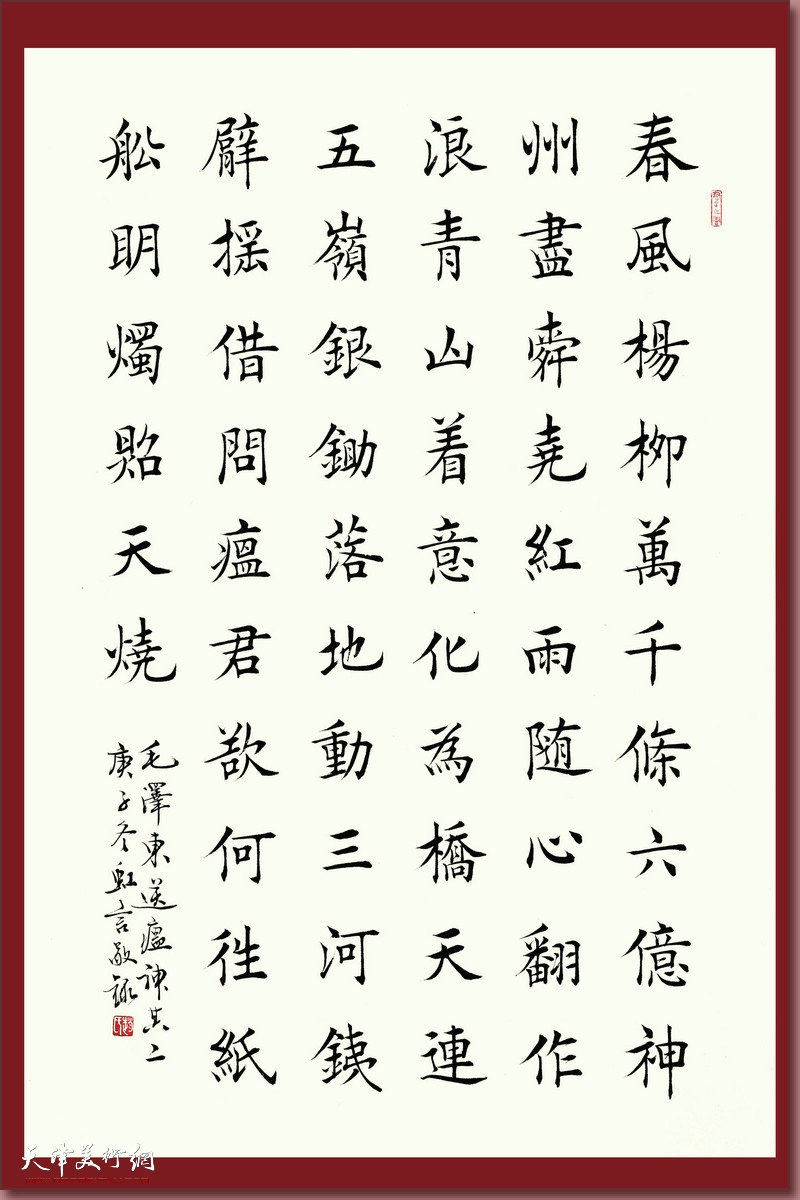 春風楊柳萬千條六億神
州盡舜堯紅雨随心翻作
浪青山着意化為橋天連
五嶺銀鋤落地動三河鐵
臂摇借問瘟君欲何往紙
船明燭照天燒
毛澤東送瘟神其二
庚子冬虹言敬録
天津美術網